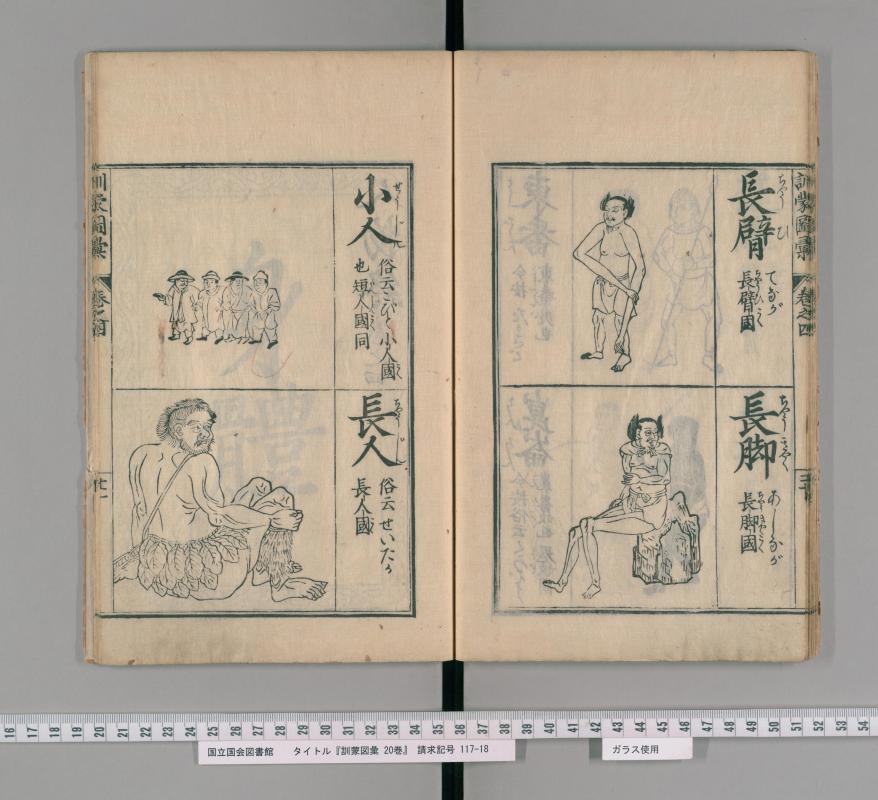 訓蒙圖彙
巻之四
長臂
ちやうひ
てなが
長臂國
長脚
ちやうきやく
あしなが
長脚國
小人
せうじん
俗云こびと小人國
也短人國同
長人
ちやうじん
俗云せいたか
長人國
訓蒙圖彙
巻之四
廿一
16 17 18 19 20 21 22 23 24 25 26 27 28 29 30 31 32 33 34 35 36 37 38 39 40 41 42 43 44 45 46 47 48 49 50 51 52 53 54
国立国会図書館 タイトル『訓蒙図彙 20巻』 請求記号 117-18
ガラス使用